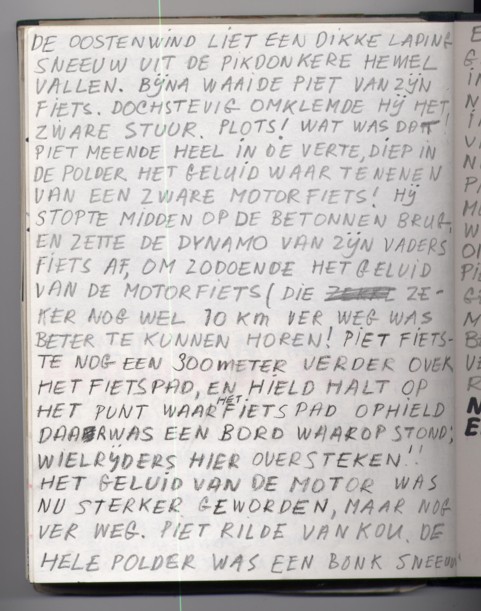 DE OOSTENWIND LIET EEN DIKKE LADING
SNEEUW UIT DE PIKDONKERE HEMEL
VALLEN. BIJNA WAAIDE PIET VAN ZIJN
FIETS. DOCH STEVIG OMKLEMDE HIJ HET
ZWARE STUUR. PLOTS! WAT WAS DAT!
PIET MEENDE HEEL IN DE VERTE, DIEP IN
DE POLDER HET GELUID WAAR TE NENEN
VAN EEN ZWARE MOTORFIETS! HIJ
STOPTE MIDDEN OP DE BETONNEN BRUG,
EN ZETTE DE DYNAMO VAN ZIJN VADERS
FIETS AF, OM ZODOENDE HET GELUID
VAN DE MOTORFIETS (DIE ZE-
KER NOG WEL 10 KM VER WEG WAS
BETER TE KUNNEN HOREN! PIET FIETS-
TE NOG EEN 300 METER VERDER OVER
HET FIETSPAD, EN HIELD HALT OP
HET PUNT WAAR HET FIETSPAD OPHIELD
DAAR WAS EEN BORD WAAROP STOND;
WIELRIJDERS HIER OVERSTEKEN!!
HET GELUID VAN DE MOTOR WAS
NU STERKER GEWORDEN, MAAR NOG
VER WEG. PIET RILDE VAN KOU. DE
HELE POLDER WAS EEN BONK SNEEUW